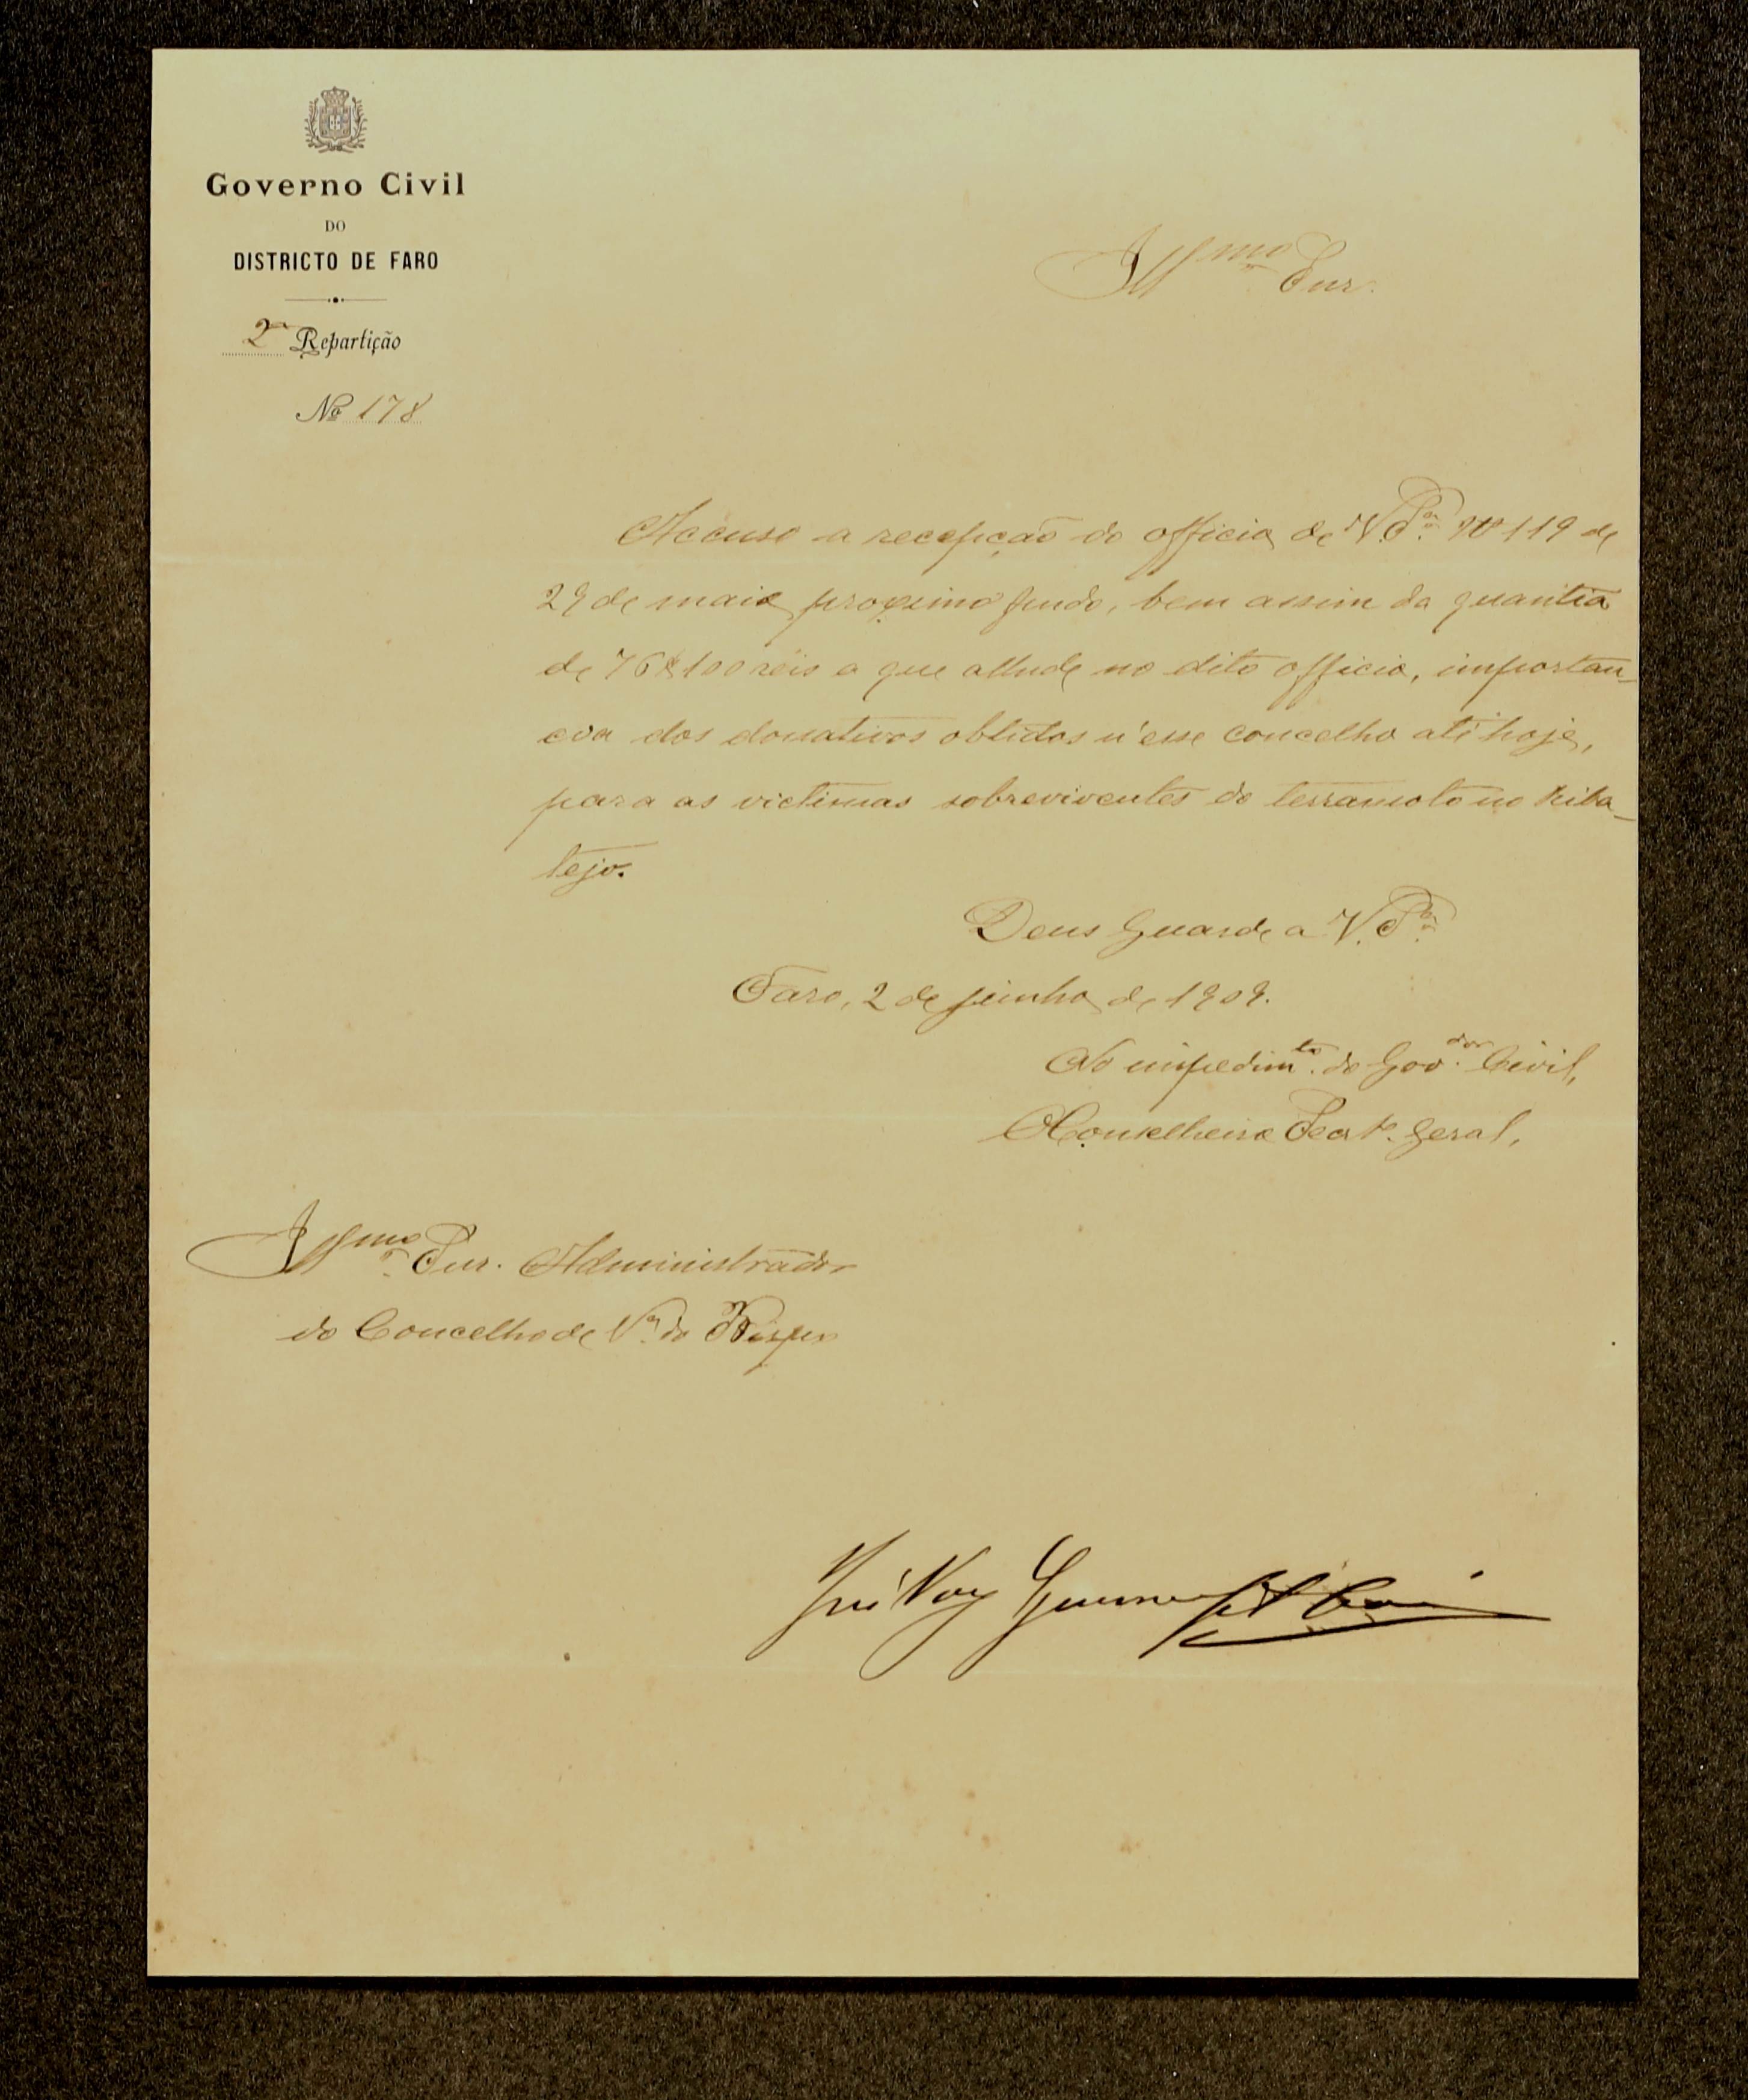 Governo Civil
DO
DISTRICTO DE FARO
2ª Repartição
Nº 178
Illmo Snr.
Accuso a recepção do officio de V. Sª Nº 119 de
29 de maio proximo findo, bem assim da quantia
de 76$100 réis a que allude no dito officio, importan-
cia dos donativos obtidos n'esse concelho até hoje,
para as victimas sobreviventes do terramoto no Riba-
tejo.
Deus Guarde a V. Sª
Faro, 2 de junho de 1909.
No impedimto. do Govdor. Civil,
O Conselheiro Secrto. Geral,
Illmo Snr. Administrador
do Concelho de Vª do Bispo
José Vaz